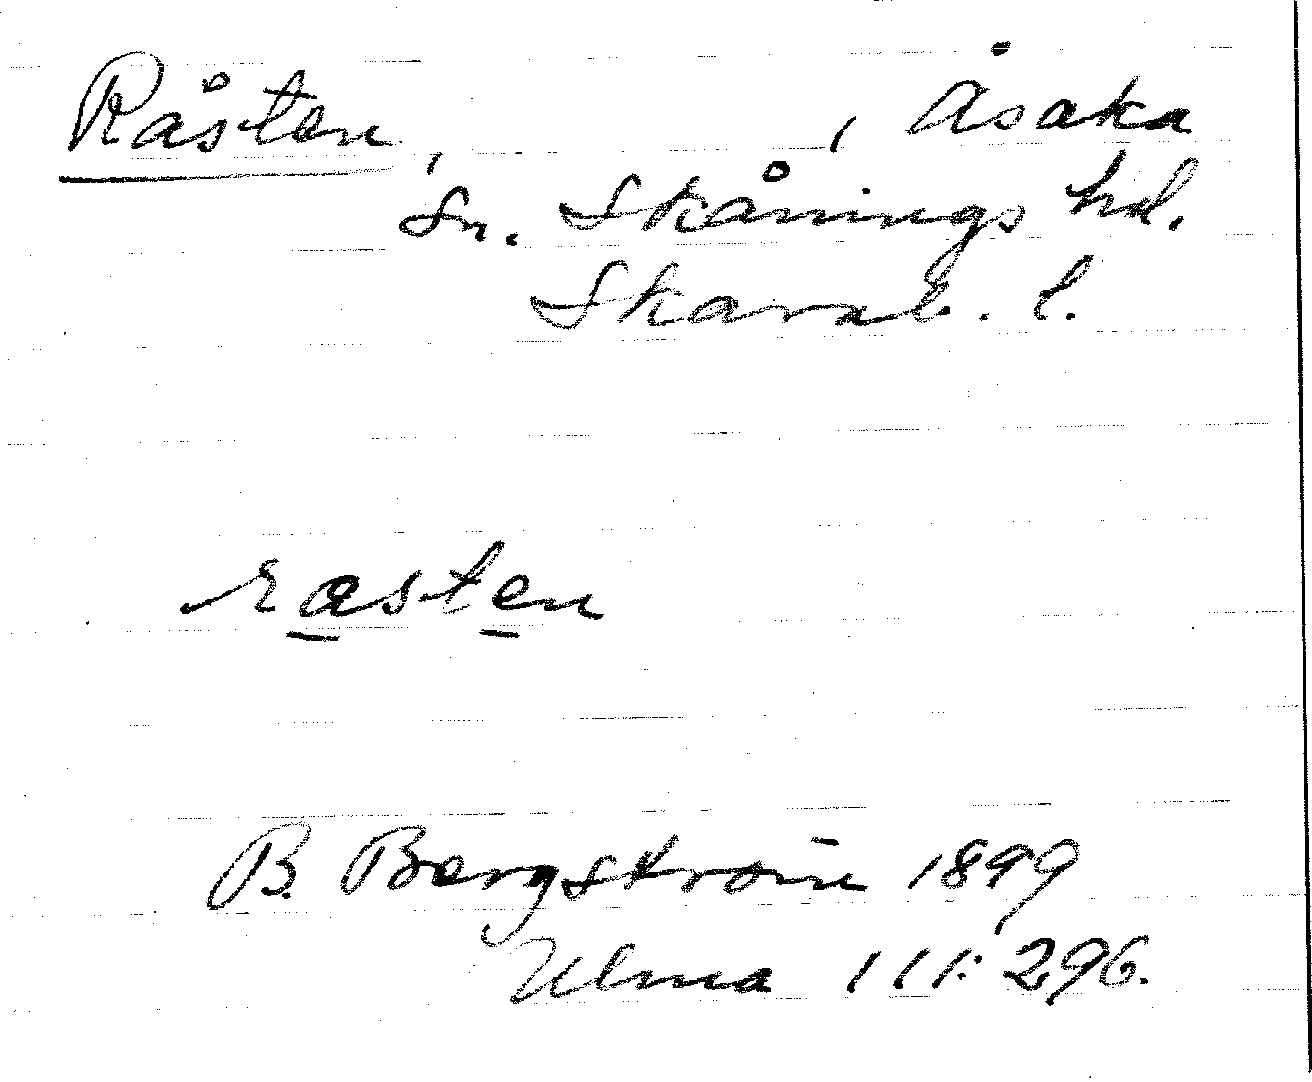 Råsten, , Åsaka
sn. Skånings hd.
Skarab. l.
rasten
B. Bergström 1899
Ulma 111:296.